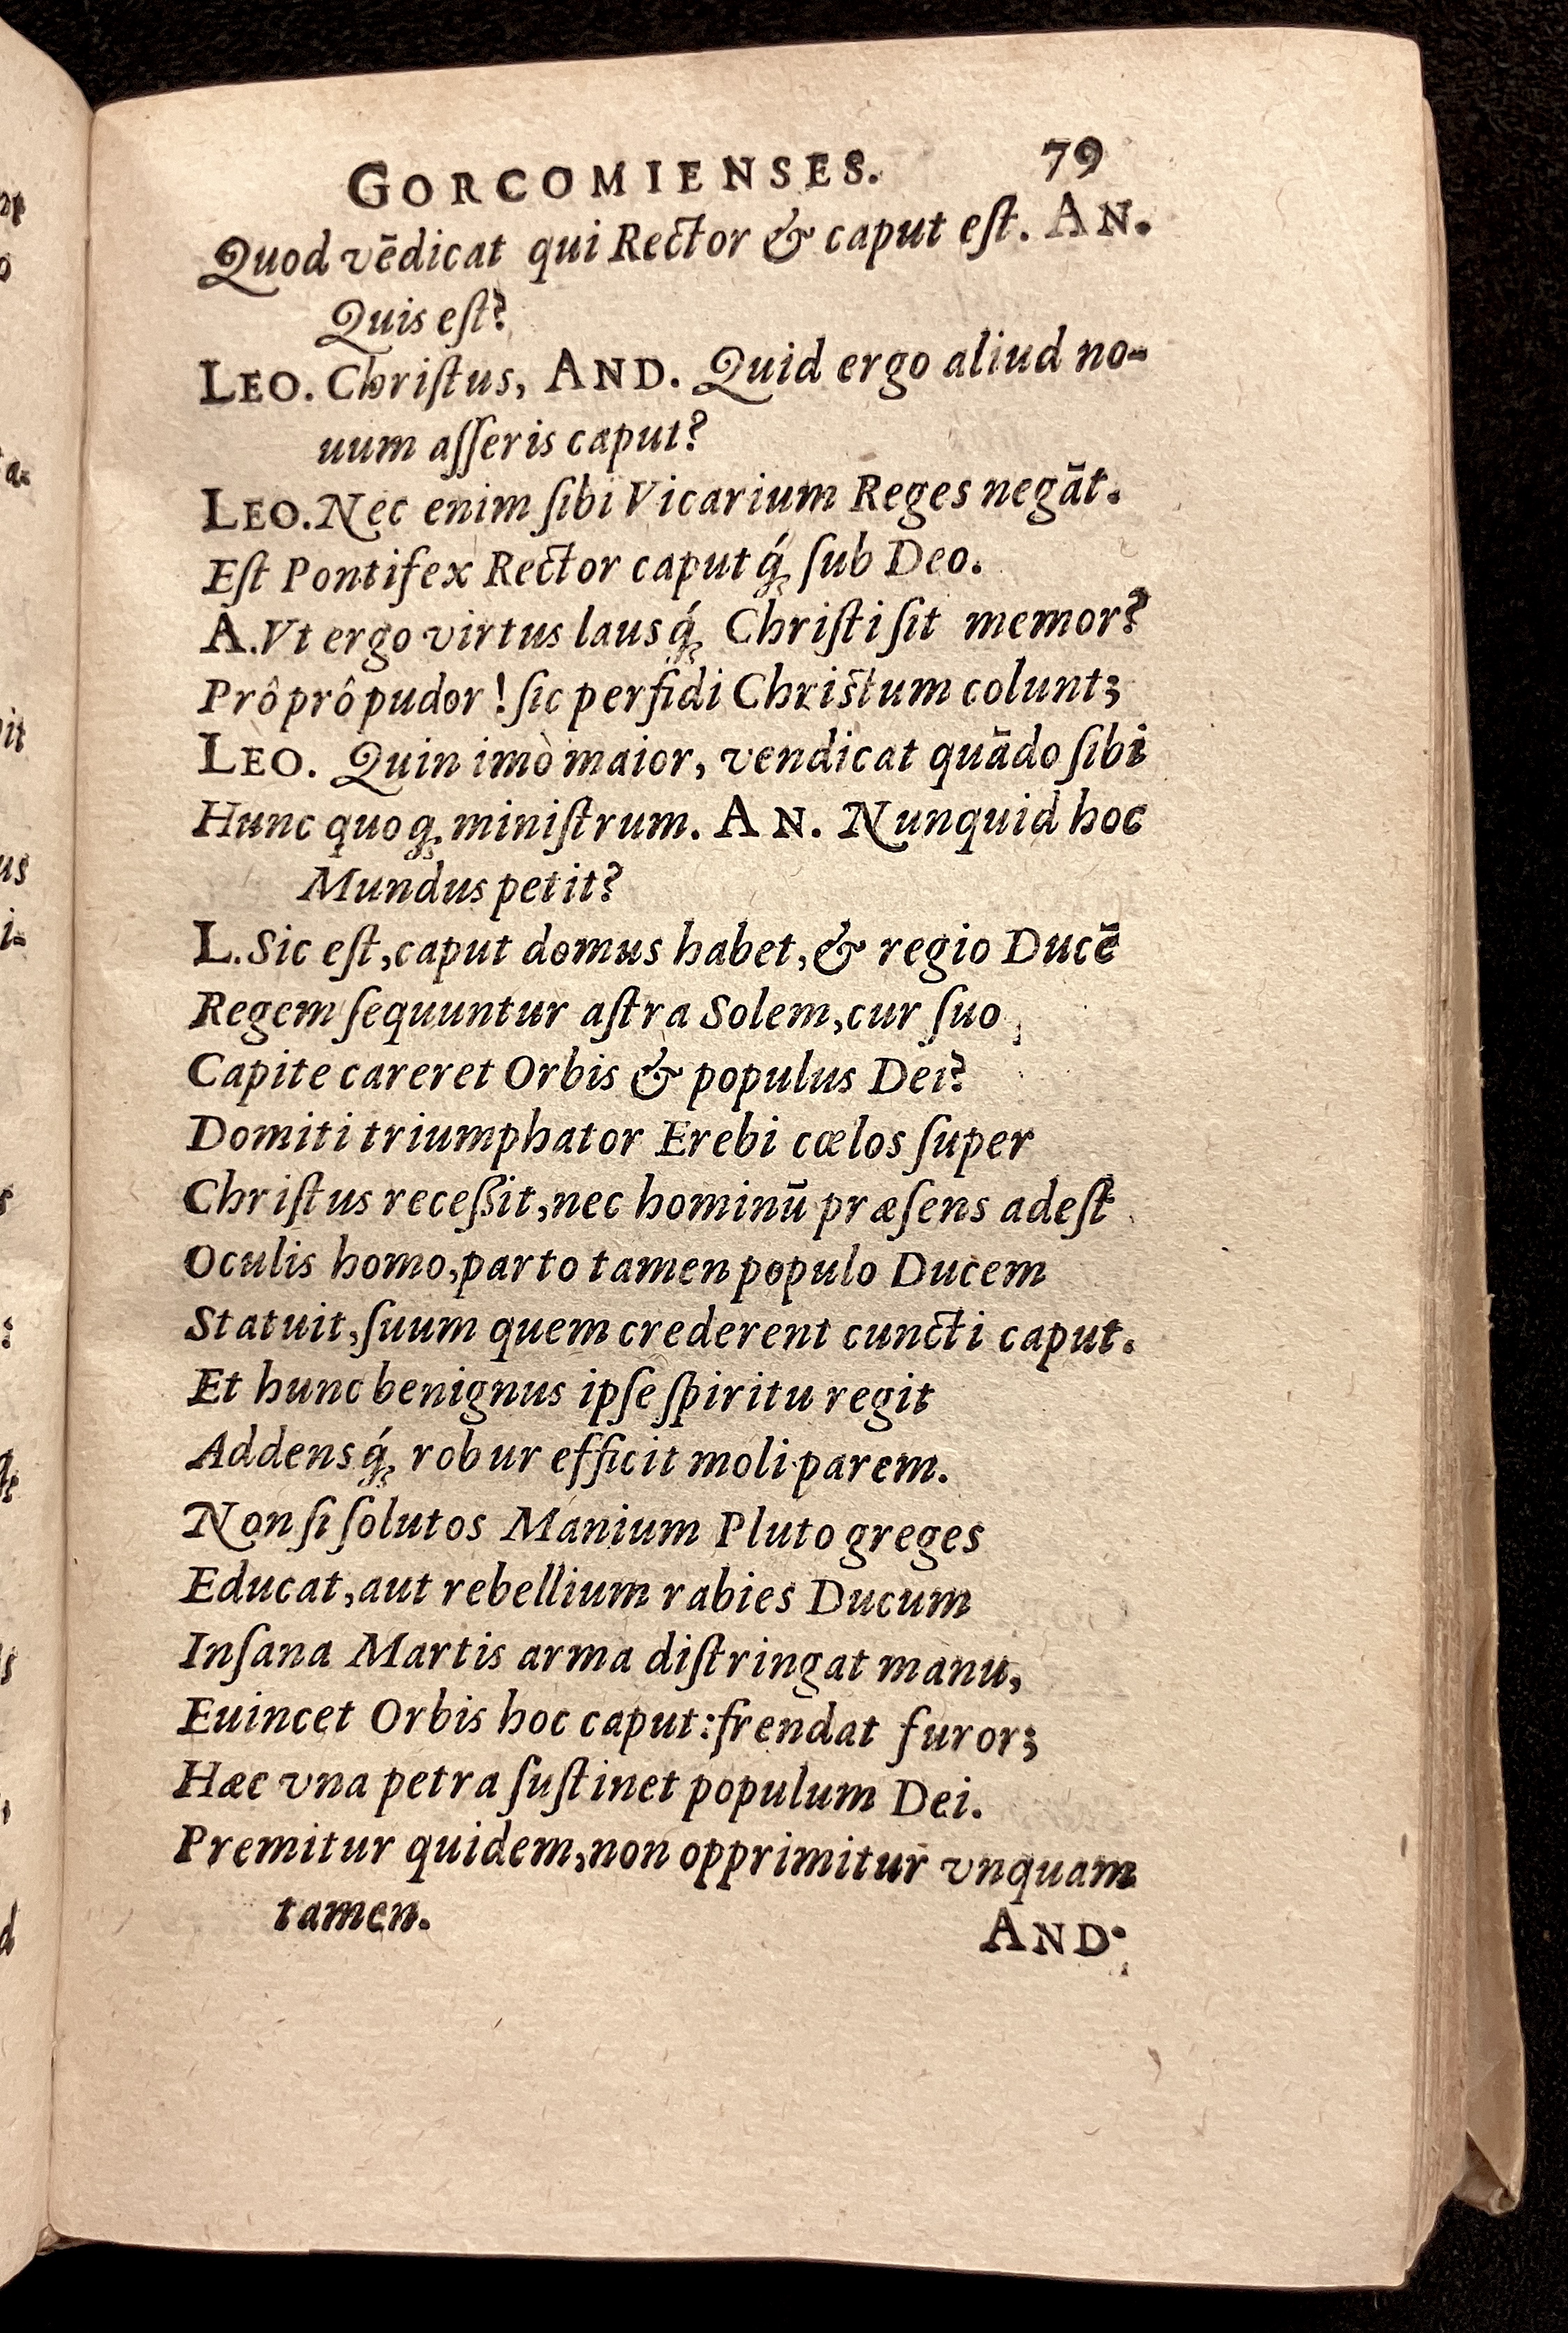 GORCOMIENSES. 79
Quod vēdicat qui Rector & caput est. AN.
Quis est?
LEO. Christus, AND. Quid ergo aliud no-
uum aſſeris caput?
LEO. Nec enim ſibi Vicarium Reges negāt.
Eſt Pontifex Rector caputq́; ſub Deo.
A. Vt ergo virtus lausq́; Chriſti ſit memor?
Prô prô pudor! ſic perfidi Chriſtum colunt;
LEO. Quin imò maior, vendicat quādo ſibi
Hunc quoq; miniſtrum. AN. Nunquid hoc
Mundus petit?
L. Sic eſt, caput domus habet, & regio Ducē
Regem ſequuntur aſtra Solem, cur ſuo
Capite careret Orbis & populus Dei?
Domiti triumphator Erebi cœlos ſuper
Chriſtus receßit, nec hominū præſens adeſt
Oculis homo, parto tamen populo Ducem
Statuit, ſuum quem crederent cuncti caput.
Et hunc benignus ipſe ſpiritu regit
Addensq́; robur efficit moli parem.
Non ſi ſolutos Manium Pluto greges
Educat, aut rebellium rabies Ducum
Inſana Martis arma diſtringat manu,
Euincet Orbis hoc caput: frendat furor;
Hæc vna petra ſuſtinet populum Dei.
Premitur quidem, non opprimitur vnquam
tamen.
AND.